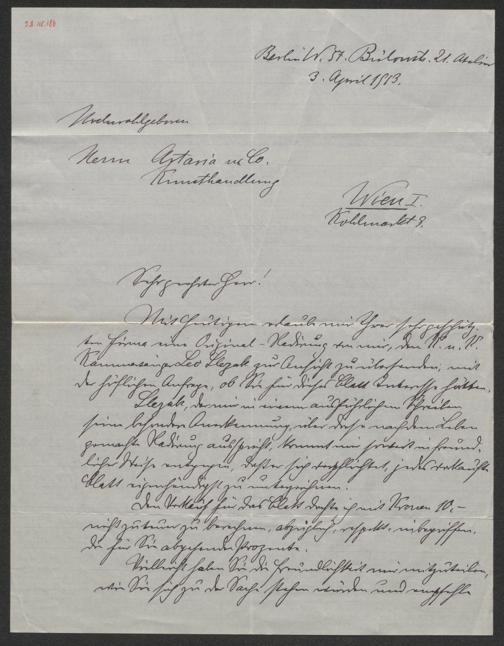 Berlin W. 57. Bülowstr. 21. Atelier
3. April 1913.
Hochwohlgeboren
Herrn Artaria u Co.
Kunsthandlung
Wien I.
Kohlmarkt 9.
Sehr geehrter Herr!
Mit Heutigem erlaube mir Ihrer sehr geschätz-
ten Firma eine Original-Radierung von mir, den K. u. K.
Kammersänger Leo Slezak zur Ansicht zu übersenden, mit
der höflichen Anfrage, ob Sie für dieses Blatt Interesse hätten.
Slezak, der mir in einem ausführlichen Schreiben
seine besondere Anerkennung, über diese nach dem Leben
gemachte Radierung ausspricht, kommt mir in freund-
licher Weise entgegen, daß er sich verpflichtet, jedes verkaufte
Blatt eigenhändigst zu unterzeichnen.
Den Verkauf für das Blatt dachte ich mit Kronen 10,-
nicht zu teuer zu berechnen, inbegriffen,
die für Sie abgehende Prozente.
Vielleicht haben Sie die Freundlichkeit mir mitzuteilen,
wie Sie sich zu der Sache stehen würden und empfehle